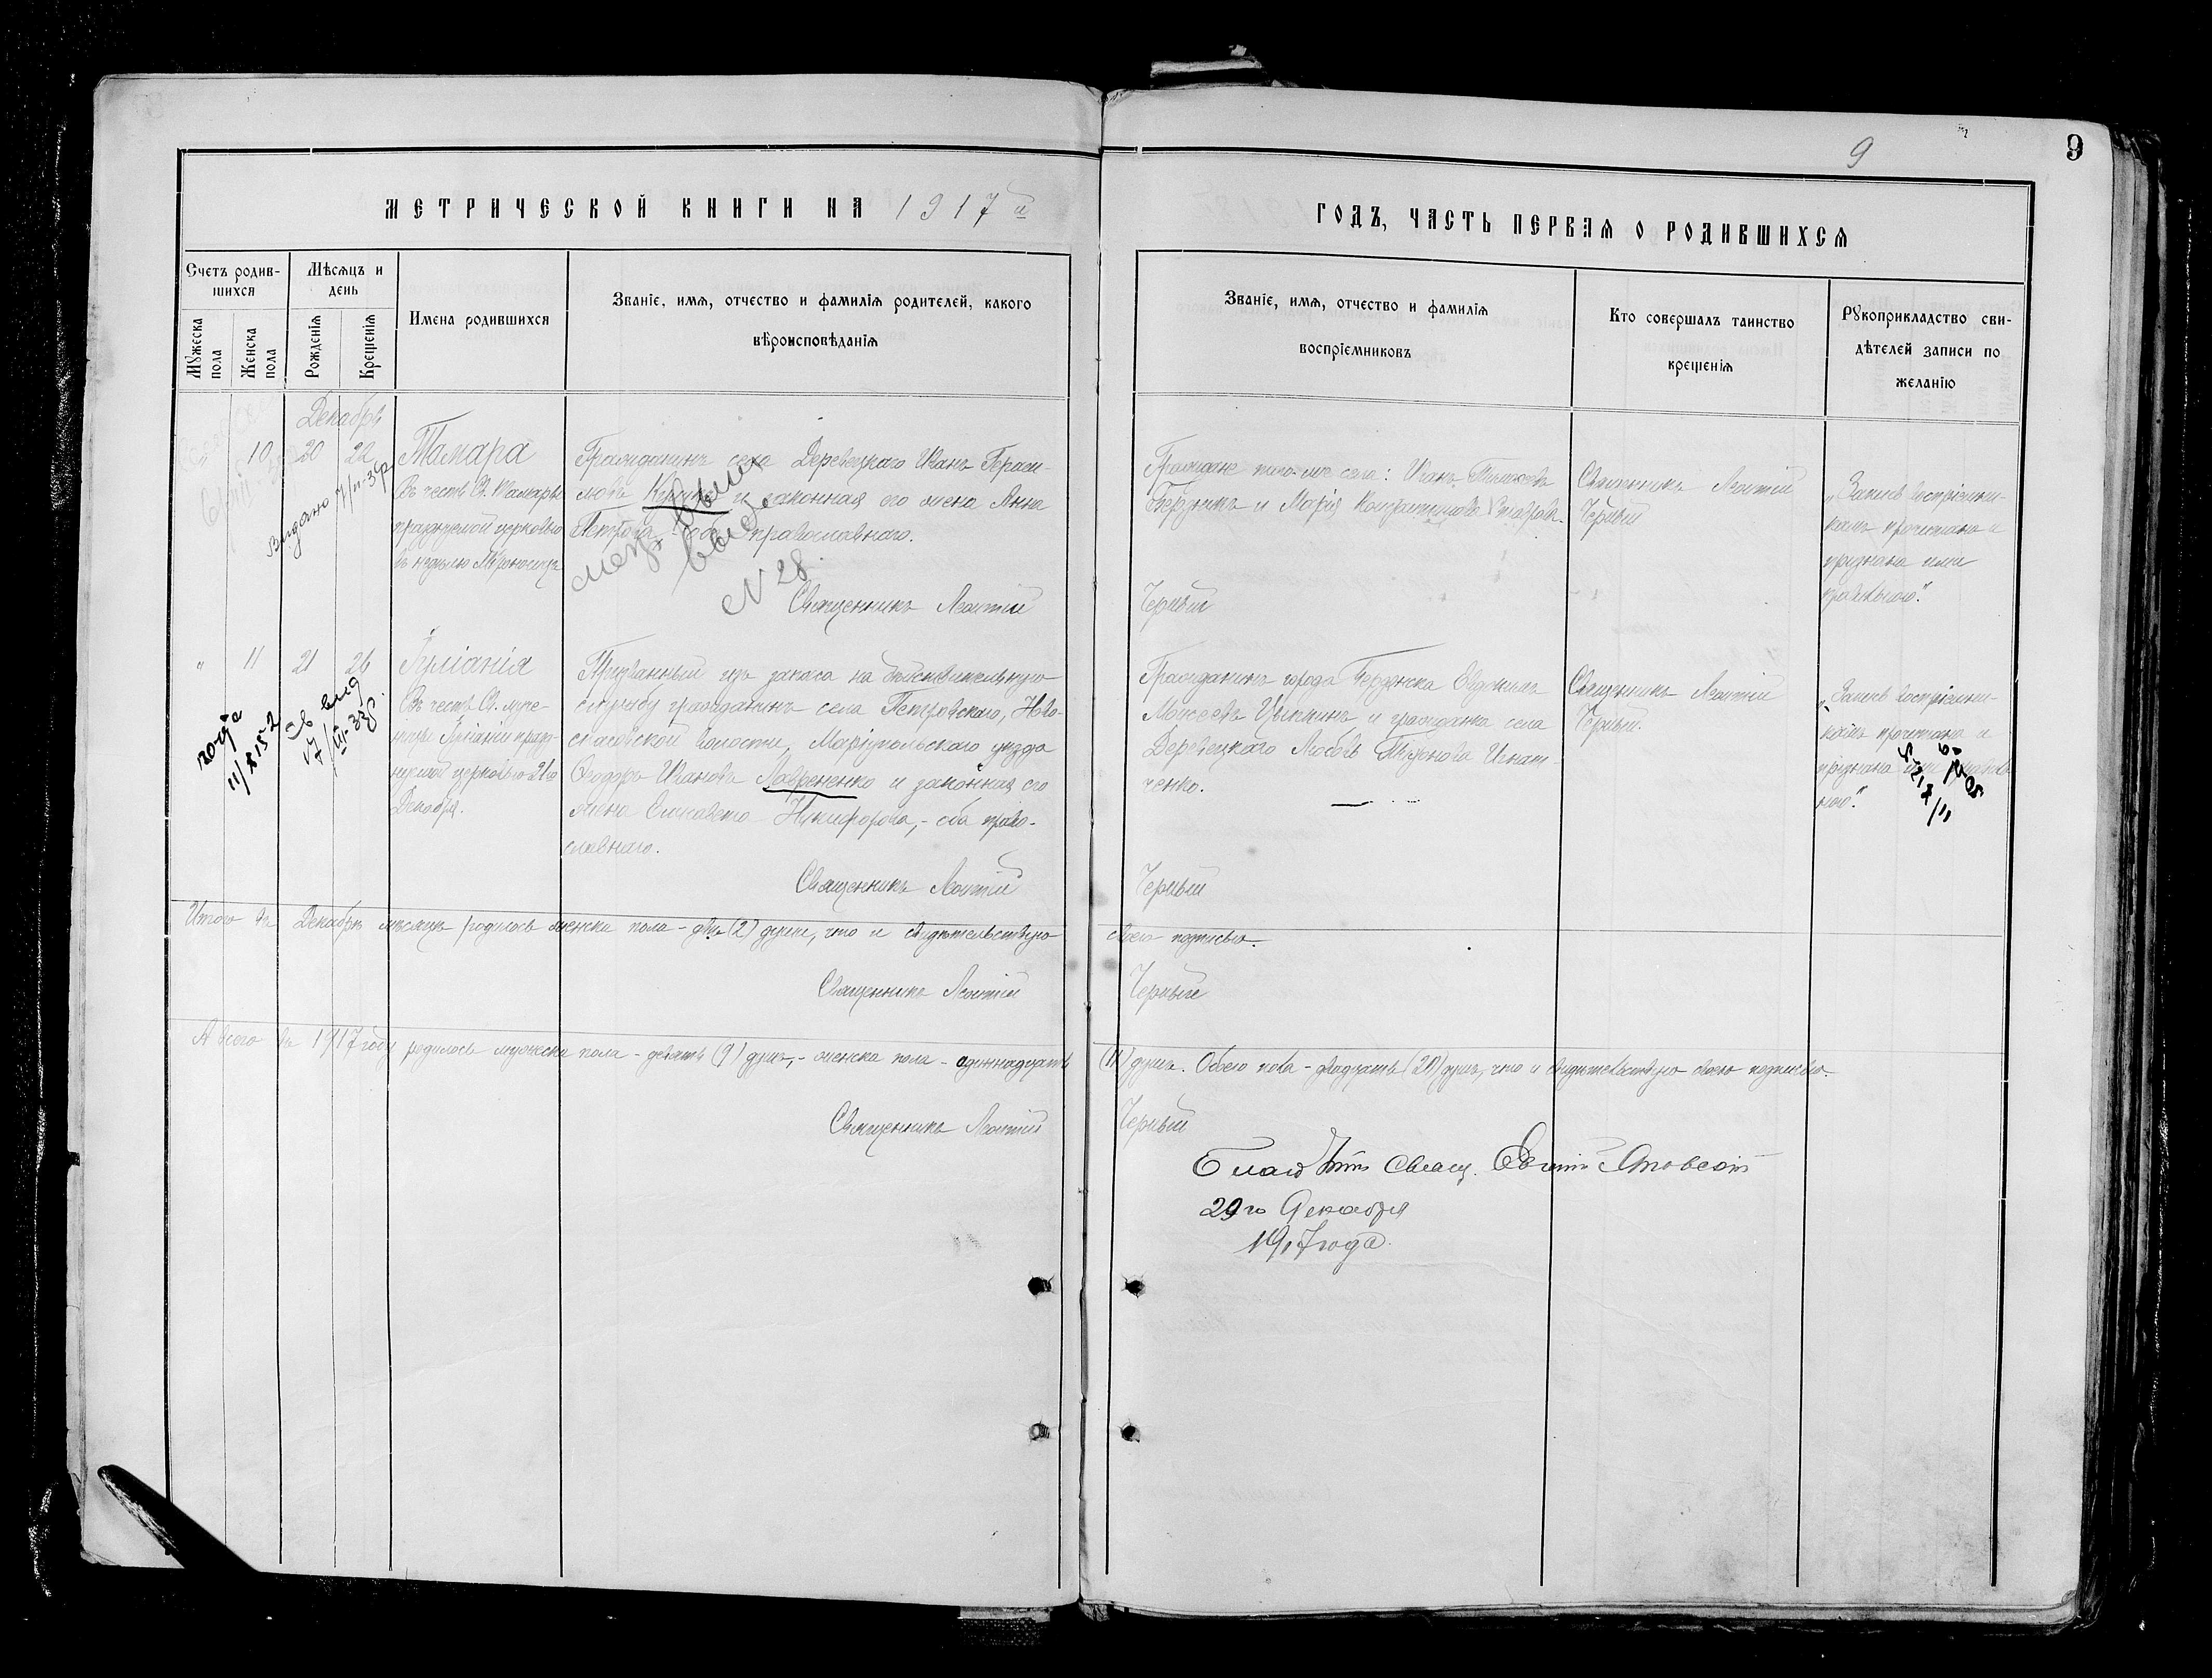 9
9
МЕТРИЧЕСКОЙ КНИГИ НА 1917й
ГОДЪ, ЧАСТЬ ПЕРВАЯ О РОДИВШИХСЯ
Счетъ родив-
шихся
Мужеска пола
Женска пола
Мѣсяцъ и
день
Рожденія
Крещенія
Имена родившихся
Званіе, имя, отчество и фамилія родителей, какого
вѣроисповѣданія
Званіе, имя, отчество и фамилія
воспріемниковъ
Кто совершалъ таинство
крещенія
Рукоприкладство сви-
дѣтелей записи по
желанію
Декабрь
10 20 22
Тамара
Въ честь Св. Тамары
празднуемой церковью
въ недѣлю Мѵроносицъ
Выдано 7/II-34
Гражданинъ села Деревецкаго Иванъ Гераси-
мовъ и законная его жена Анна
Петрова, оба православнаго.
N 28
Священникъ Леонтій
Граждане того-же села: Иванъ
и Марія Константинова
Священникъ Леонтій
„Запись воспріемни-
камъ прочитана и
признана ими
правильною."
" 11 21 26
Іуліанія
Въ честь Св. муче-
ницы Іуліаніи празд-
нуемой церковью 21го
Декабря.
Призванный изъ запаса на дѣйствительную
службу гражданинъ села Петровскаго, Ново-
спасовской волости, Маріупольскаго уѣзда
Ѳеодоръ Ивановъ Лавриненко и законная его
жена Елисавета Никифорова, - оба право-
славнаго.
Священникъ Леонтій
Гражданинъ города Бердянска Евдокимъ
Моисеевъ Цыпкинъ и гражданка села
Деревецкаго Любовь Игнат-
ченко.
Священникъ Леонтій
„Запись воспріемни-
камъ прочитана и
признана ими правиль-
ною."
Итого въ Декабрѣ мѣсяцѣ родилось женска пола - двѣ (2) души, что и свидѣтельствую своею подписью.
Священникъ Леонтій
А всего въ 1917 году родилось мужеска пола - девять (9) душъ, - женска пола - одиннадцать (11) душъ. Обоего пола - двадцать (20) душъ, что и свидѣтельствую своею подписью.
Священникъ Леонтій
29го Декабря
1917 года.